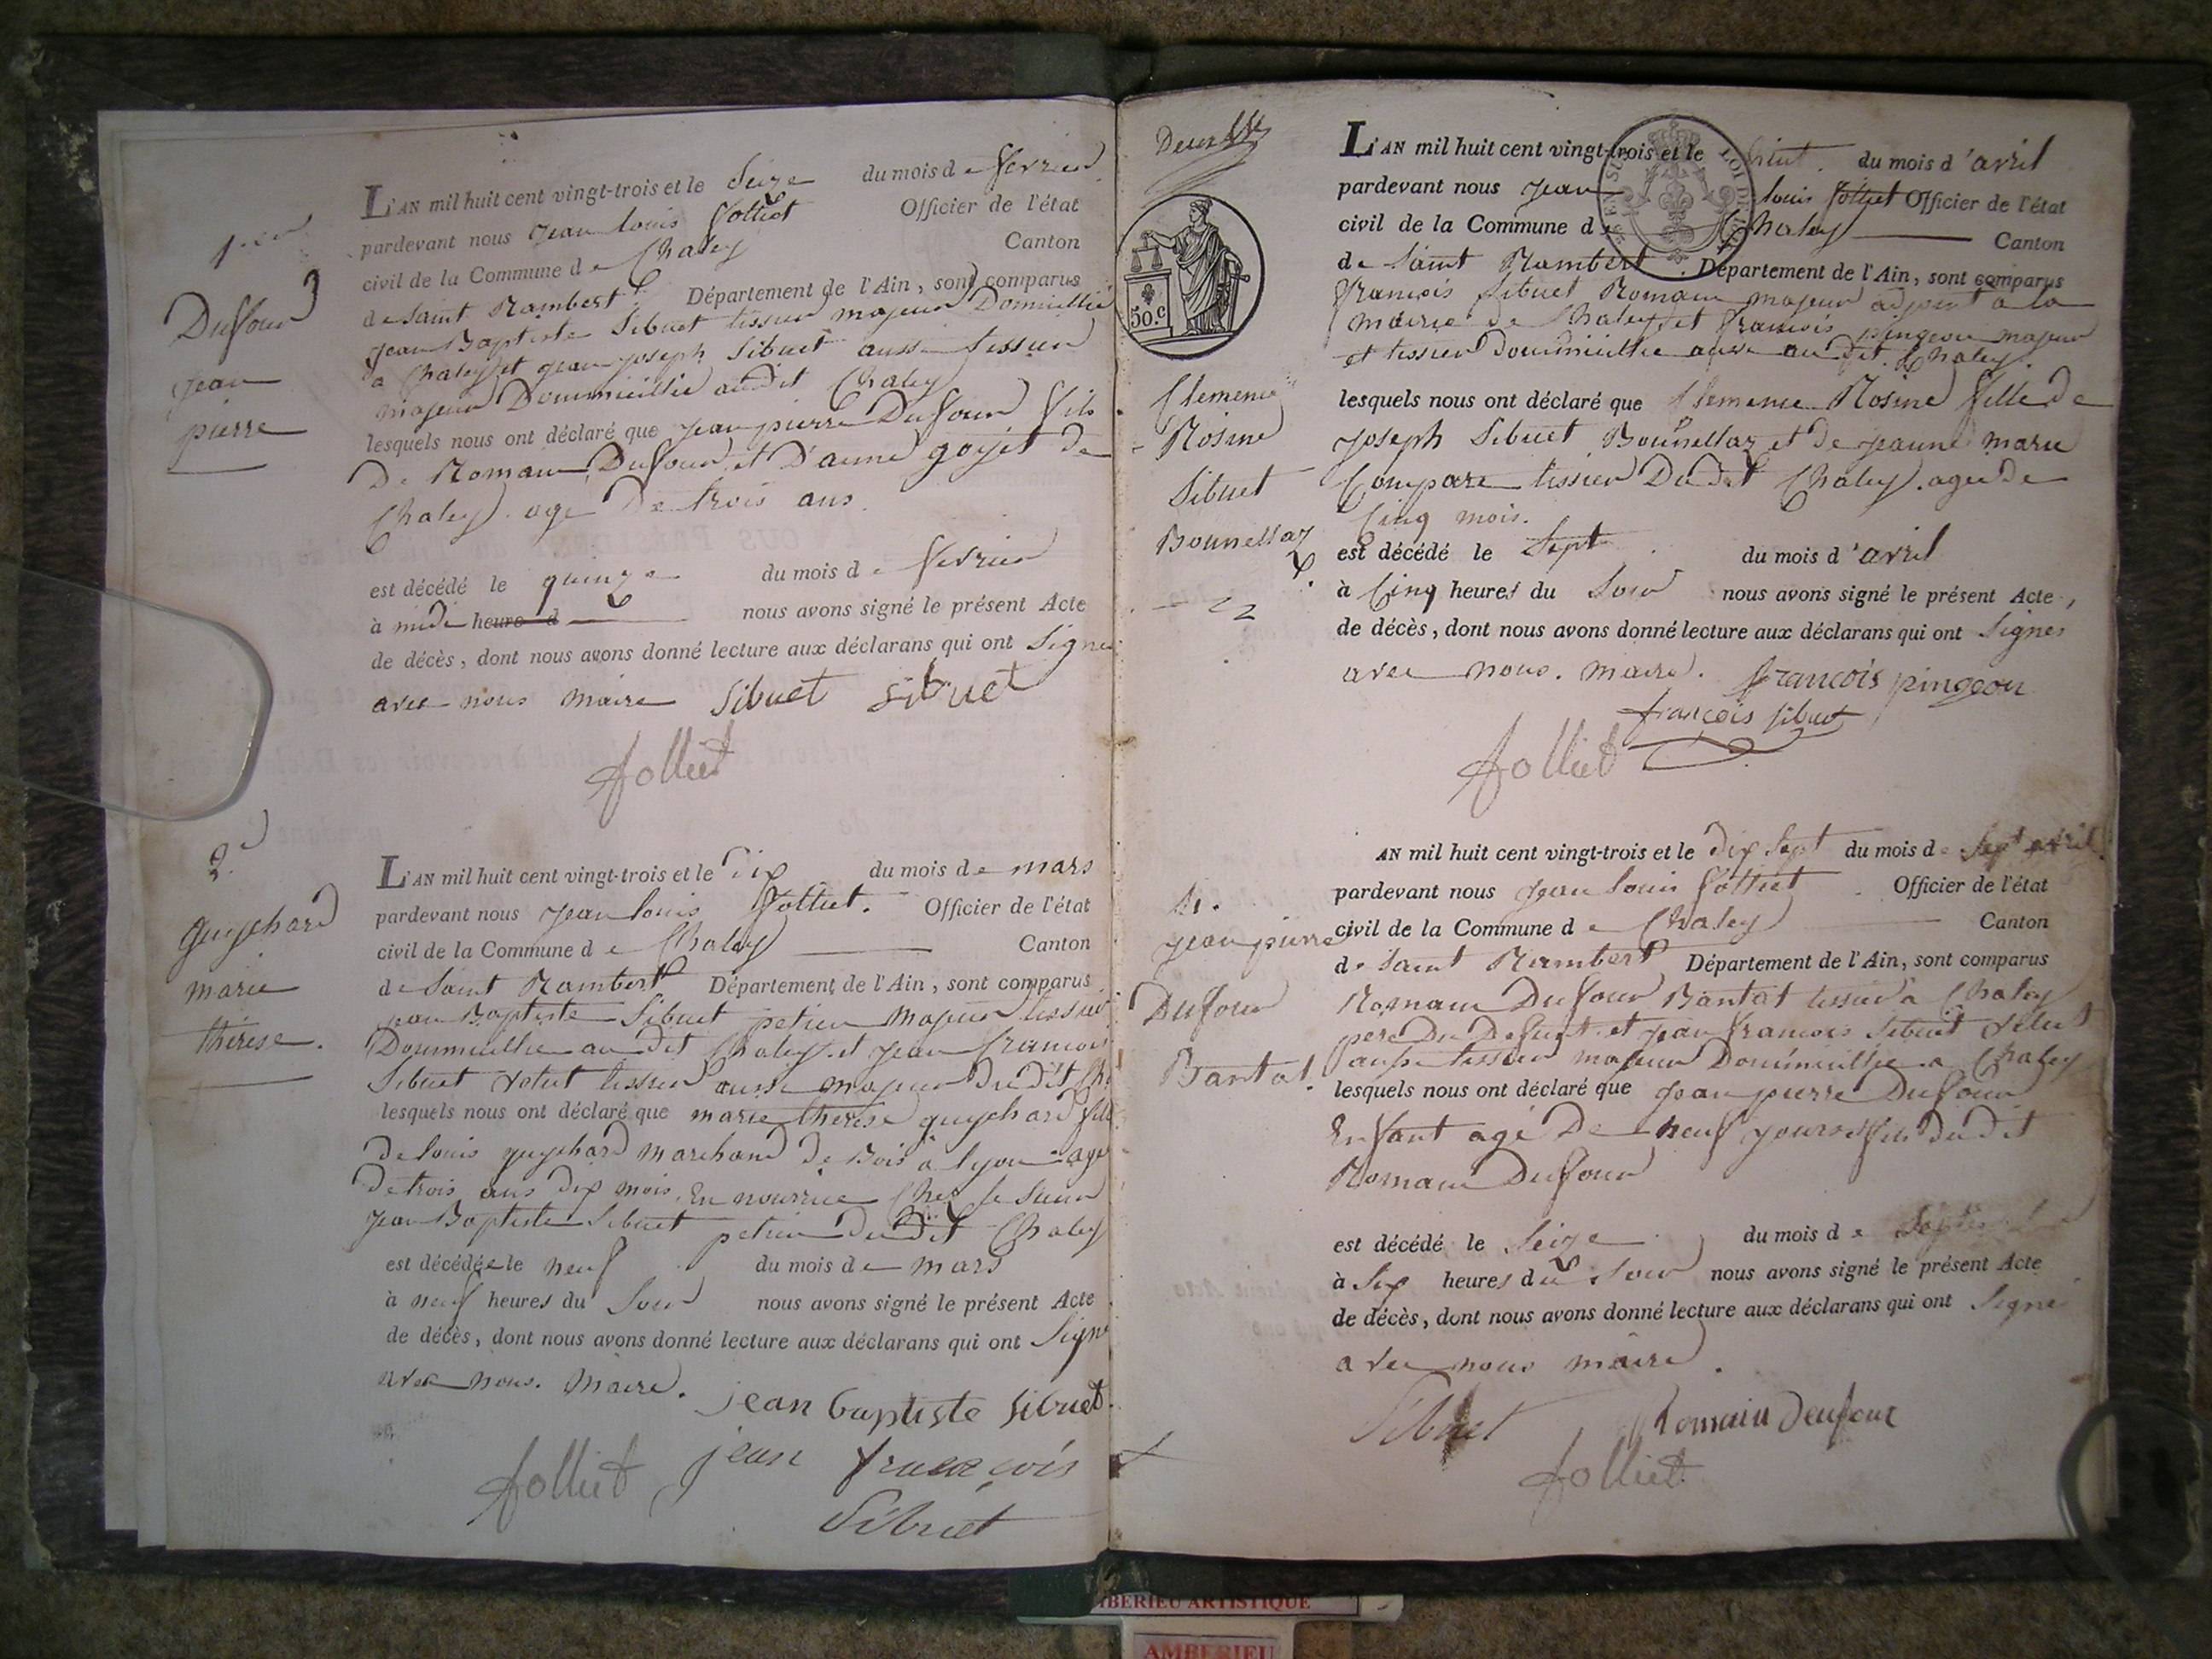 1.er
Dufour
jean
pierre
L'AN mil huit cent vingt-trois et le Seize du mois de fevrier
pardevant nous jean louis folliet Officier de l'état
civil de la Commune de Chaley Canton
de Saint Rambert Département de l'Ain, sont comparus
jean Baptiste Sibuet tissier majeur Domicillié
a Chaley et jean joseph Sibuet aussi tissier
majeur Dommicillié audit Chaley
lesquels nous ont déclaré que jean pierre Dufour fils
De Romain Dufour et D'anne goyet de
Chaley. age De trois ans
est décédé le quinze du mois de fevrier
à midi heure d nous avons signé le présent Acte
de décès, dont nous avons donné lecture aux déclarans qui ont Signé
avec nous maire Sibuet Sibuet
folliet
2.
guychard
marie
thérese.
L'AN mil huit cent vingt-trois et le dix du mois de mars
pardevant nous jean louis folliet. Officier de l'état
civil de la Commune de Chaley Canton
de Saint Rambert Département de l'Ain, sont comparus
jean Baptiste Sibuet majeur tissier
Dommicillie au dit Chaley et jean francois
Sibuet tissier aussi majeur Du dit
lesquels nous ont déclaré que marie thérese guychard fille
De louis guychard marchand De Bois a lyon age
De trois ans dix mois En nourrice Chez le Sieur
jean Baptiste Sibuet Du dit Chaley
est décédée le neuf du mois de mars
à neuf heures du Soir nous avons signé le présent Acte
de décès, dont nous avons donné lecture aux déclarans qui ont Signé
avec nous. Maire. jean baptiste sibuet
folliet jean françois
Sibuet
50.c
Clemence
Rosine
Sibuet
Bounellaz
L'AN mil huit cent vingt-trois et le huit du mois d'avril
pardevant nous jean louis folliet Officier de l'état
civil de la Commune de Chaley Canton
de Saint Rambert. Département de l'Ain, sont comparus
francois Sibuet Romain majeur adjoint a la
mairie de Chaley et francois pingeon majeur
et tissier Dommicillie aussi au dit Chaley.
lesquels nous ont déclaré que Clemence Rosine fille De
joseph Sibuet Bounellaz et de jeanne marie
Compare tissier Du dit Chaley. agee De
Cinq mois.
est décédé le Sept du mois d'avril
à Cinq heures du Soir nous avons signé le présent Acte,
de décès, dont nous avons donné lecture aux déclarans qui ont Signes
avec nous. maire. francois pingeon
françois sibuet
folliet
4.
jean pierre
Dufour
Bantat.
AN mil huit cent vingt-trois et le dix Sept du mois de
pardevant nous jean louis folliet Officier de l'état
civil de la Commune de Chaley Canton
de Saint Rambert Département de l'Ain, sont comparus
Romain Dufour Bantat tissier a Chaley
pere Du Defunt et jean francois Sibuet
aussi tissier majeur Dommicillie a Chaley
lesquels nous ont déclaré que jean pierre Dufour
Enfant agé De neuf jours fils du dit
Romain Dufour
est décédé le Seize du mois de
à Six heures du Soir nous avons signé le présent Acte
de décès, dont nous avons donné lecture aux déclarans qui ont Signé
avec nous maire.
Sibuet Romain deufour
folliet
AMBERIEU ARTISTIQUE
AMBERIEU